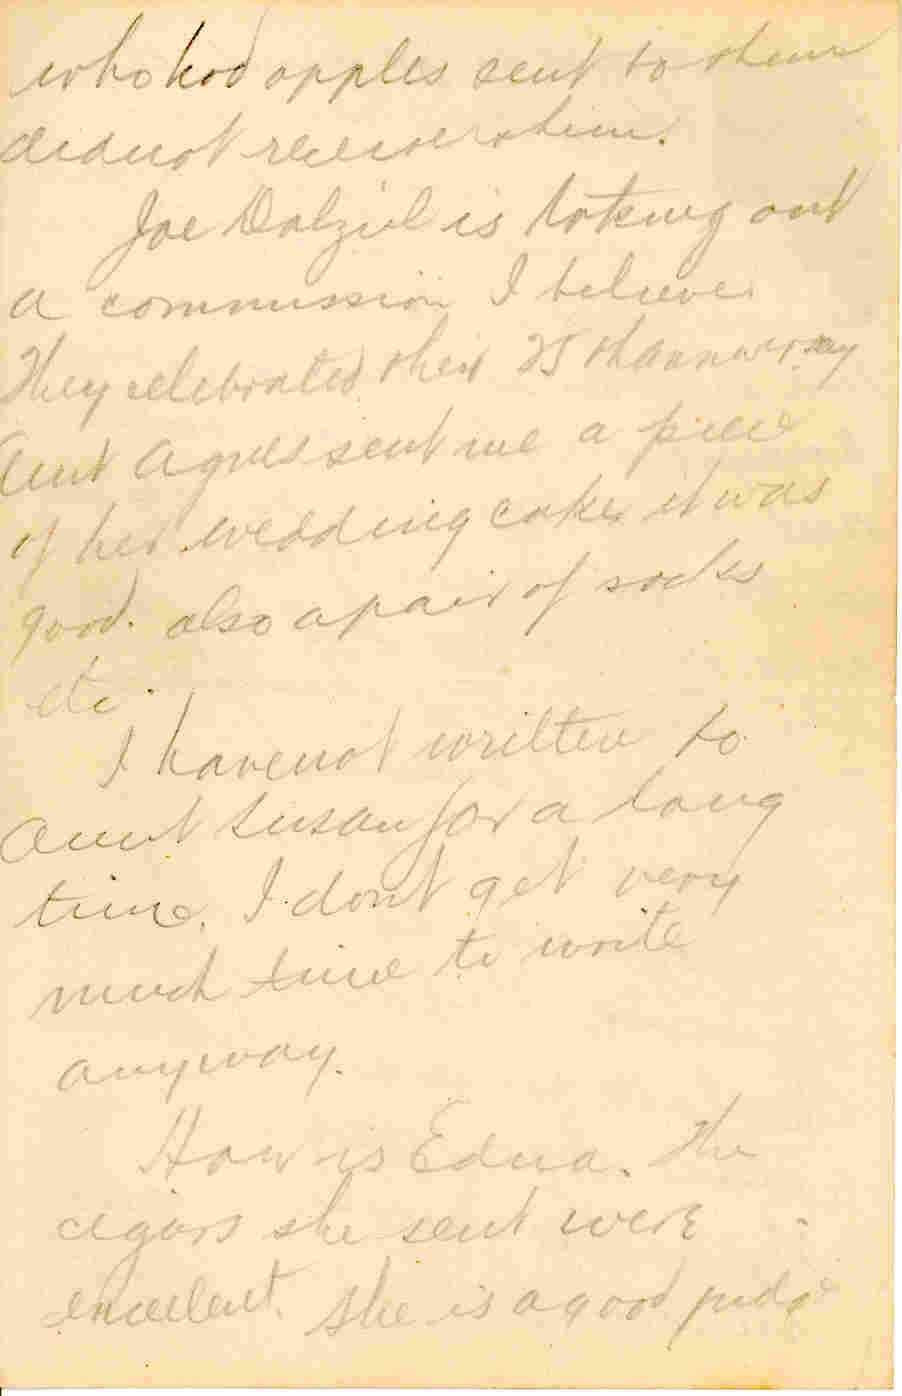 who had apples sent to them
did not receive them.
Joe Dalziel is taking out
a commission I believe.
They celebrated their 25 th anniversay
Aunt Agnes sent me a piece
of her wedding cake it was
good. also a pair of socks
etc.
I have not written to
Aunt Susan for a long
time. I dont get very
much time to write
anyway.
How is Edna. The
cigars she sent were
excellent. She is a good judge